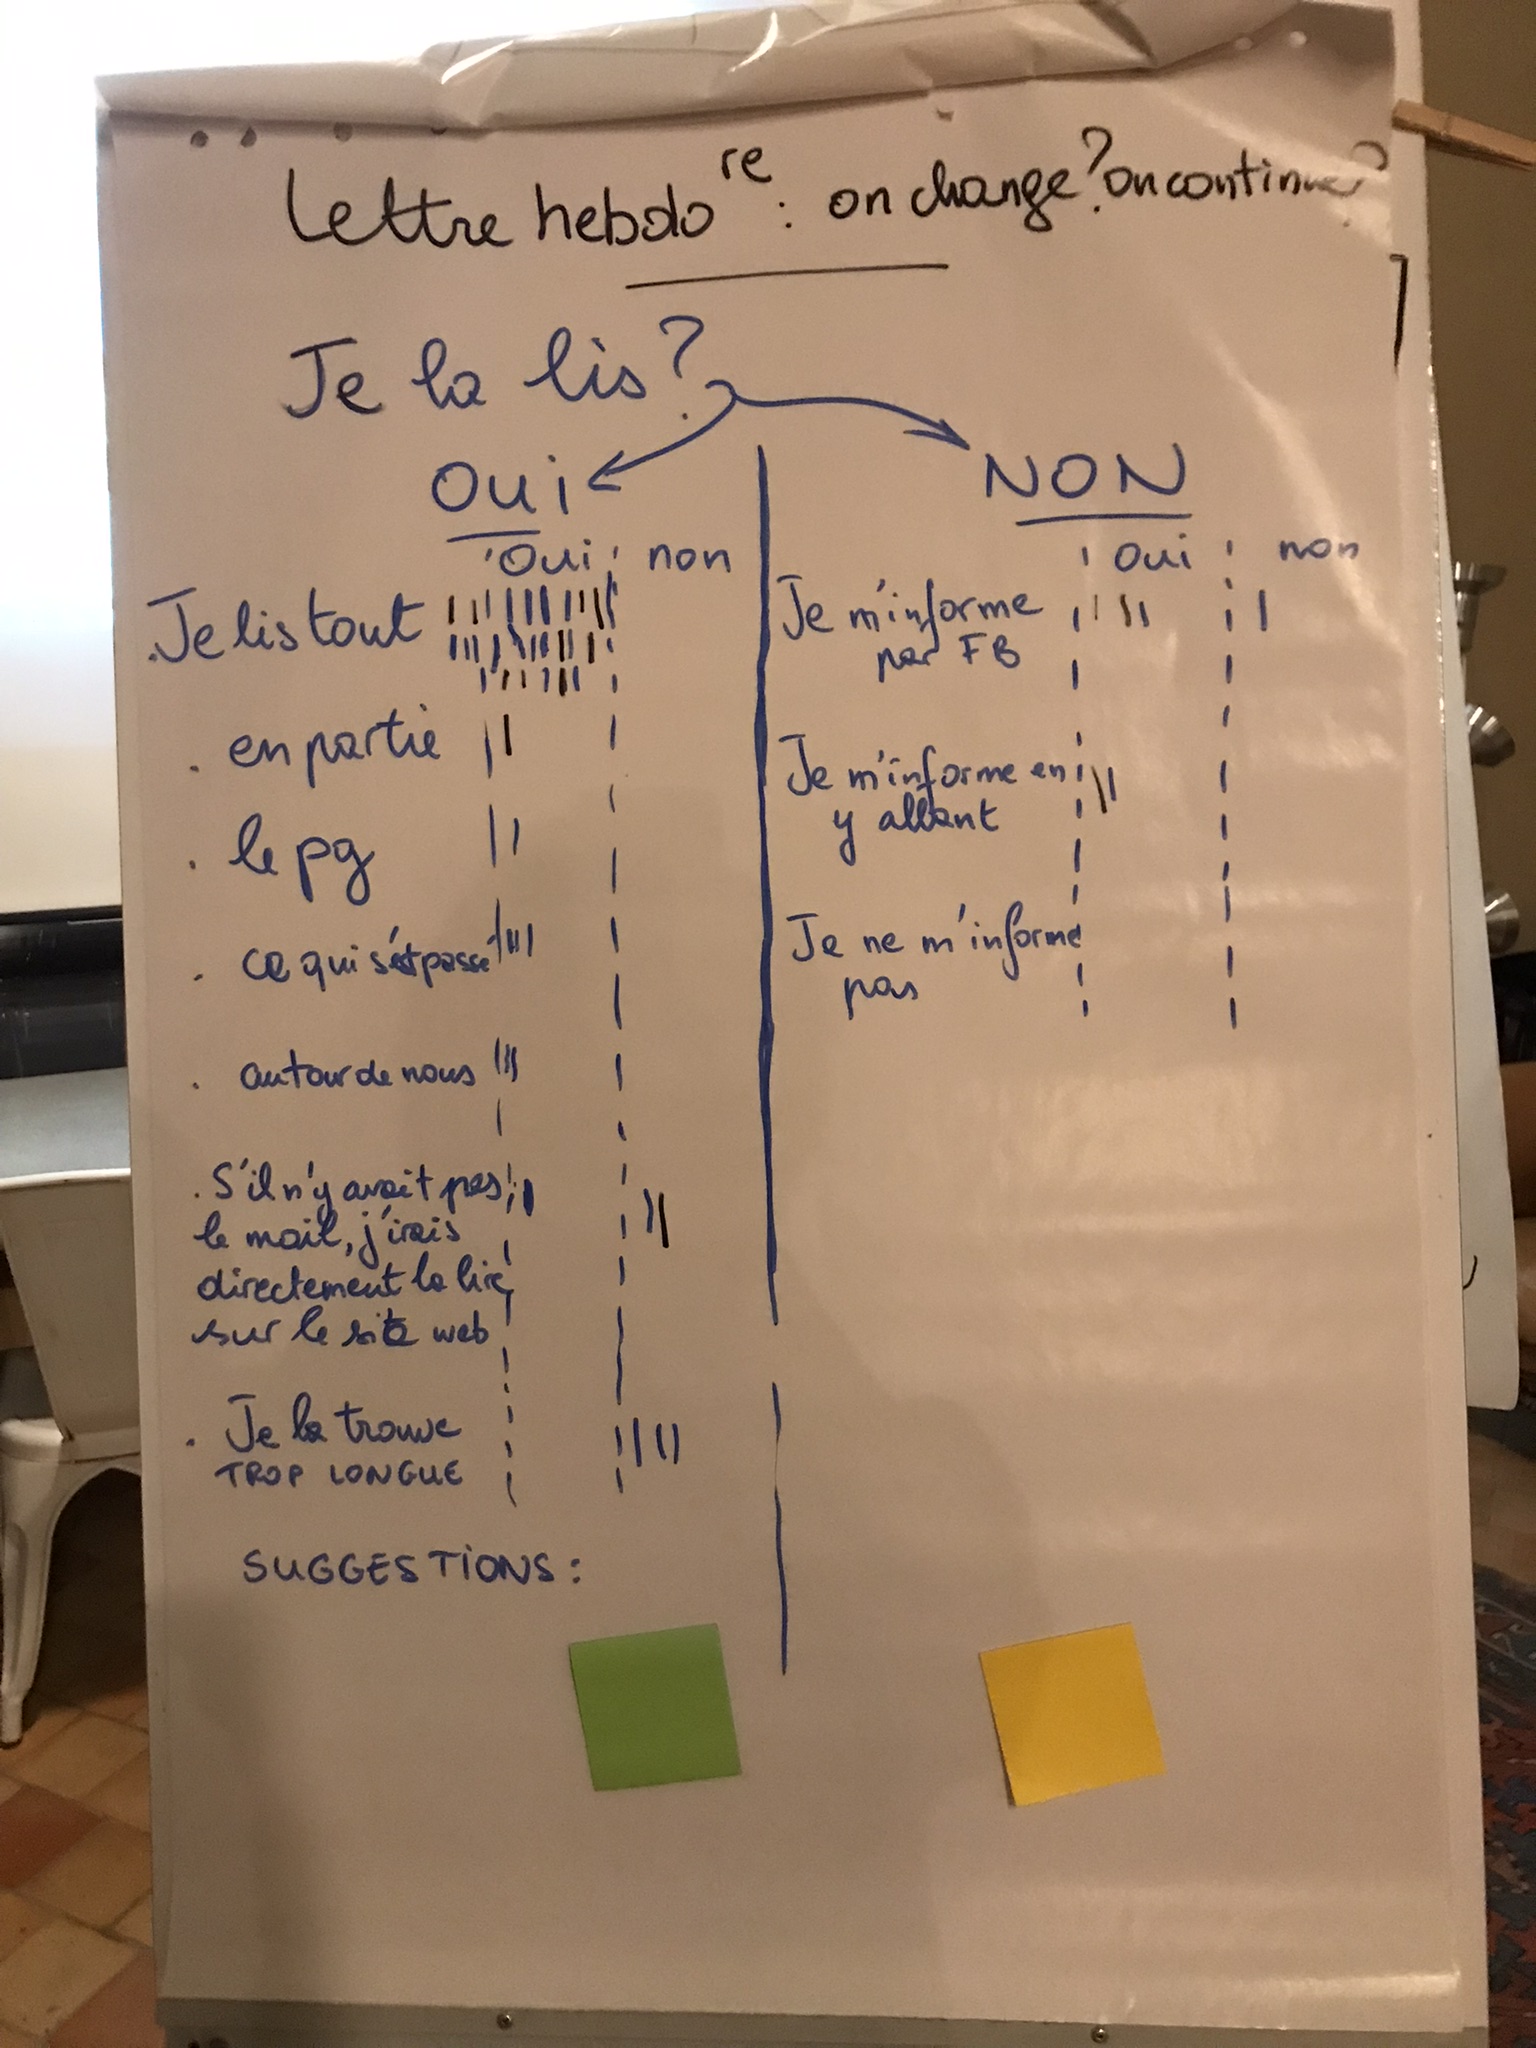 Lettre hebdo re : on change? on continue?
Je la lis?
Oui
Oui non
. Je lis tout
. en partie
. le pg
. ce qui s'est passé
. autour de nous
. S'il n'y avait pas
le mail, j'irais
directement la lire
sur le site web
. Je la trouve
TROP LONGUE
SUGGESTIONS :
NON
Oui non
Je m'informe
par FB
Je m'informe en
y allant
Je ne m'informe
pas